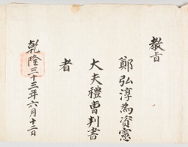 教旨
鄭弘淳為資憲
大夫禮曹判書
者
乾隆三十三年六月十二日